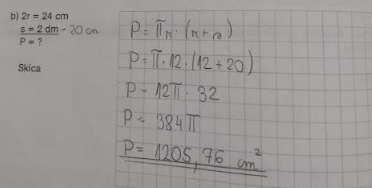 b) 2r = 24 cm
s = 2 dm - 20 cm
P = ?
Skica
P = πr · (r + s)
P = π · 12 · (12 + 20)
P = 12π · 32
P = 384π
P = 1205,76 cm²